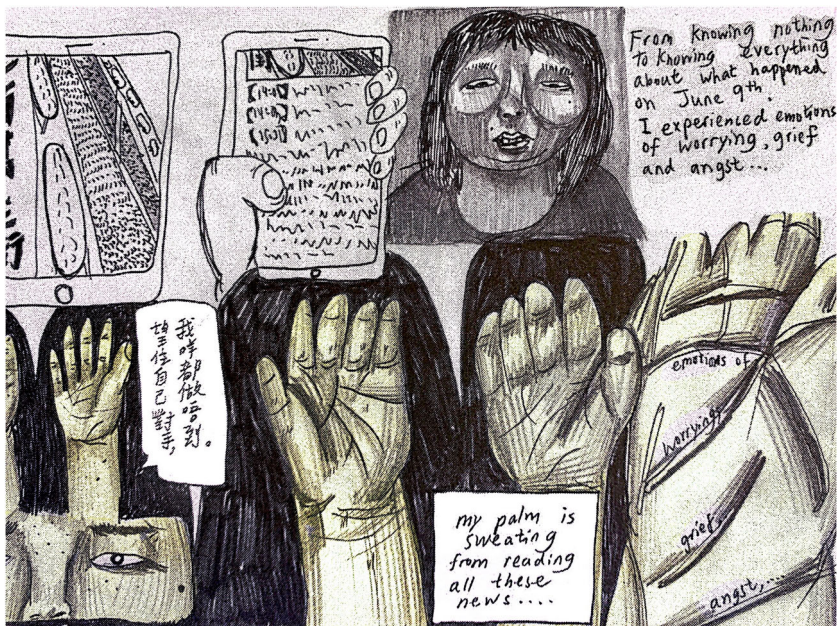 From knowing nothing
to knowing everything
about what happened
on June 9th.
I experienced emotions
of worrying, grief
and angst...
望住自己對手,
我咩都做唔到。
my palm is
sweating
from reading
all these
news....
emotions of
worrying,
grief,
angst,...